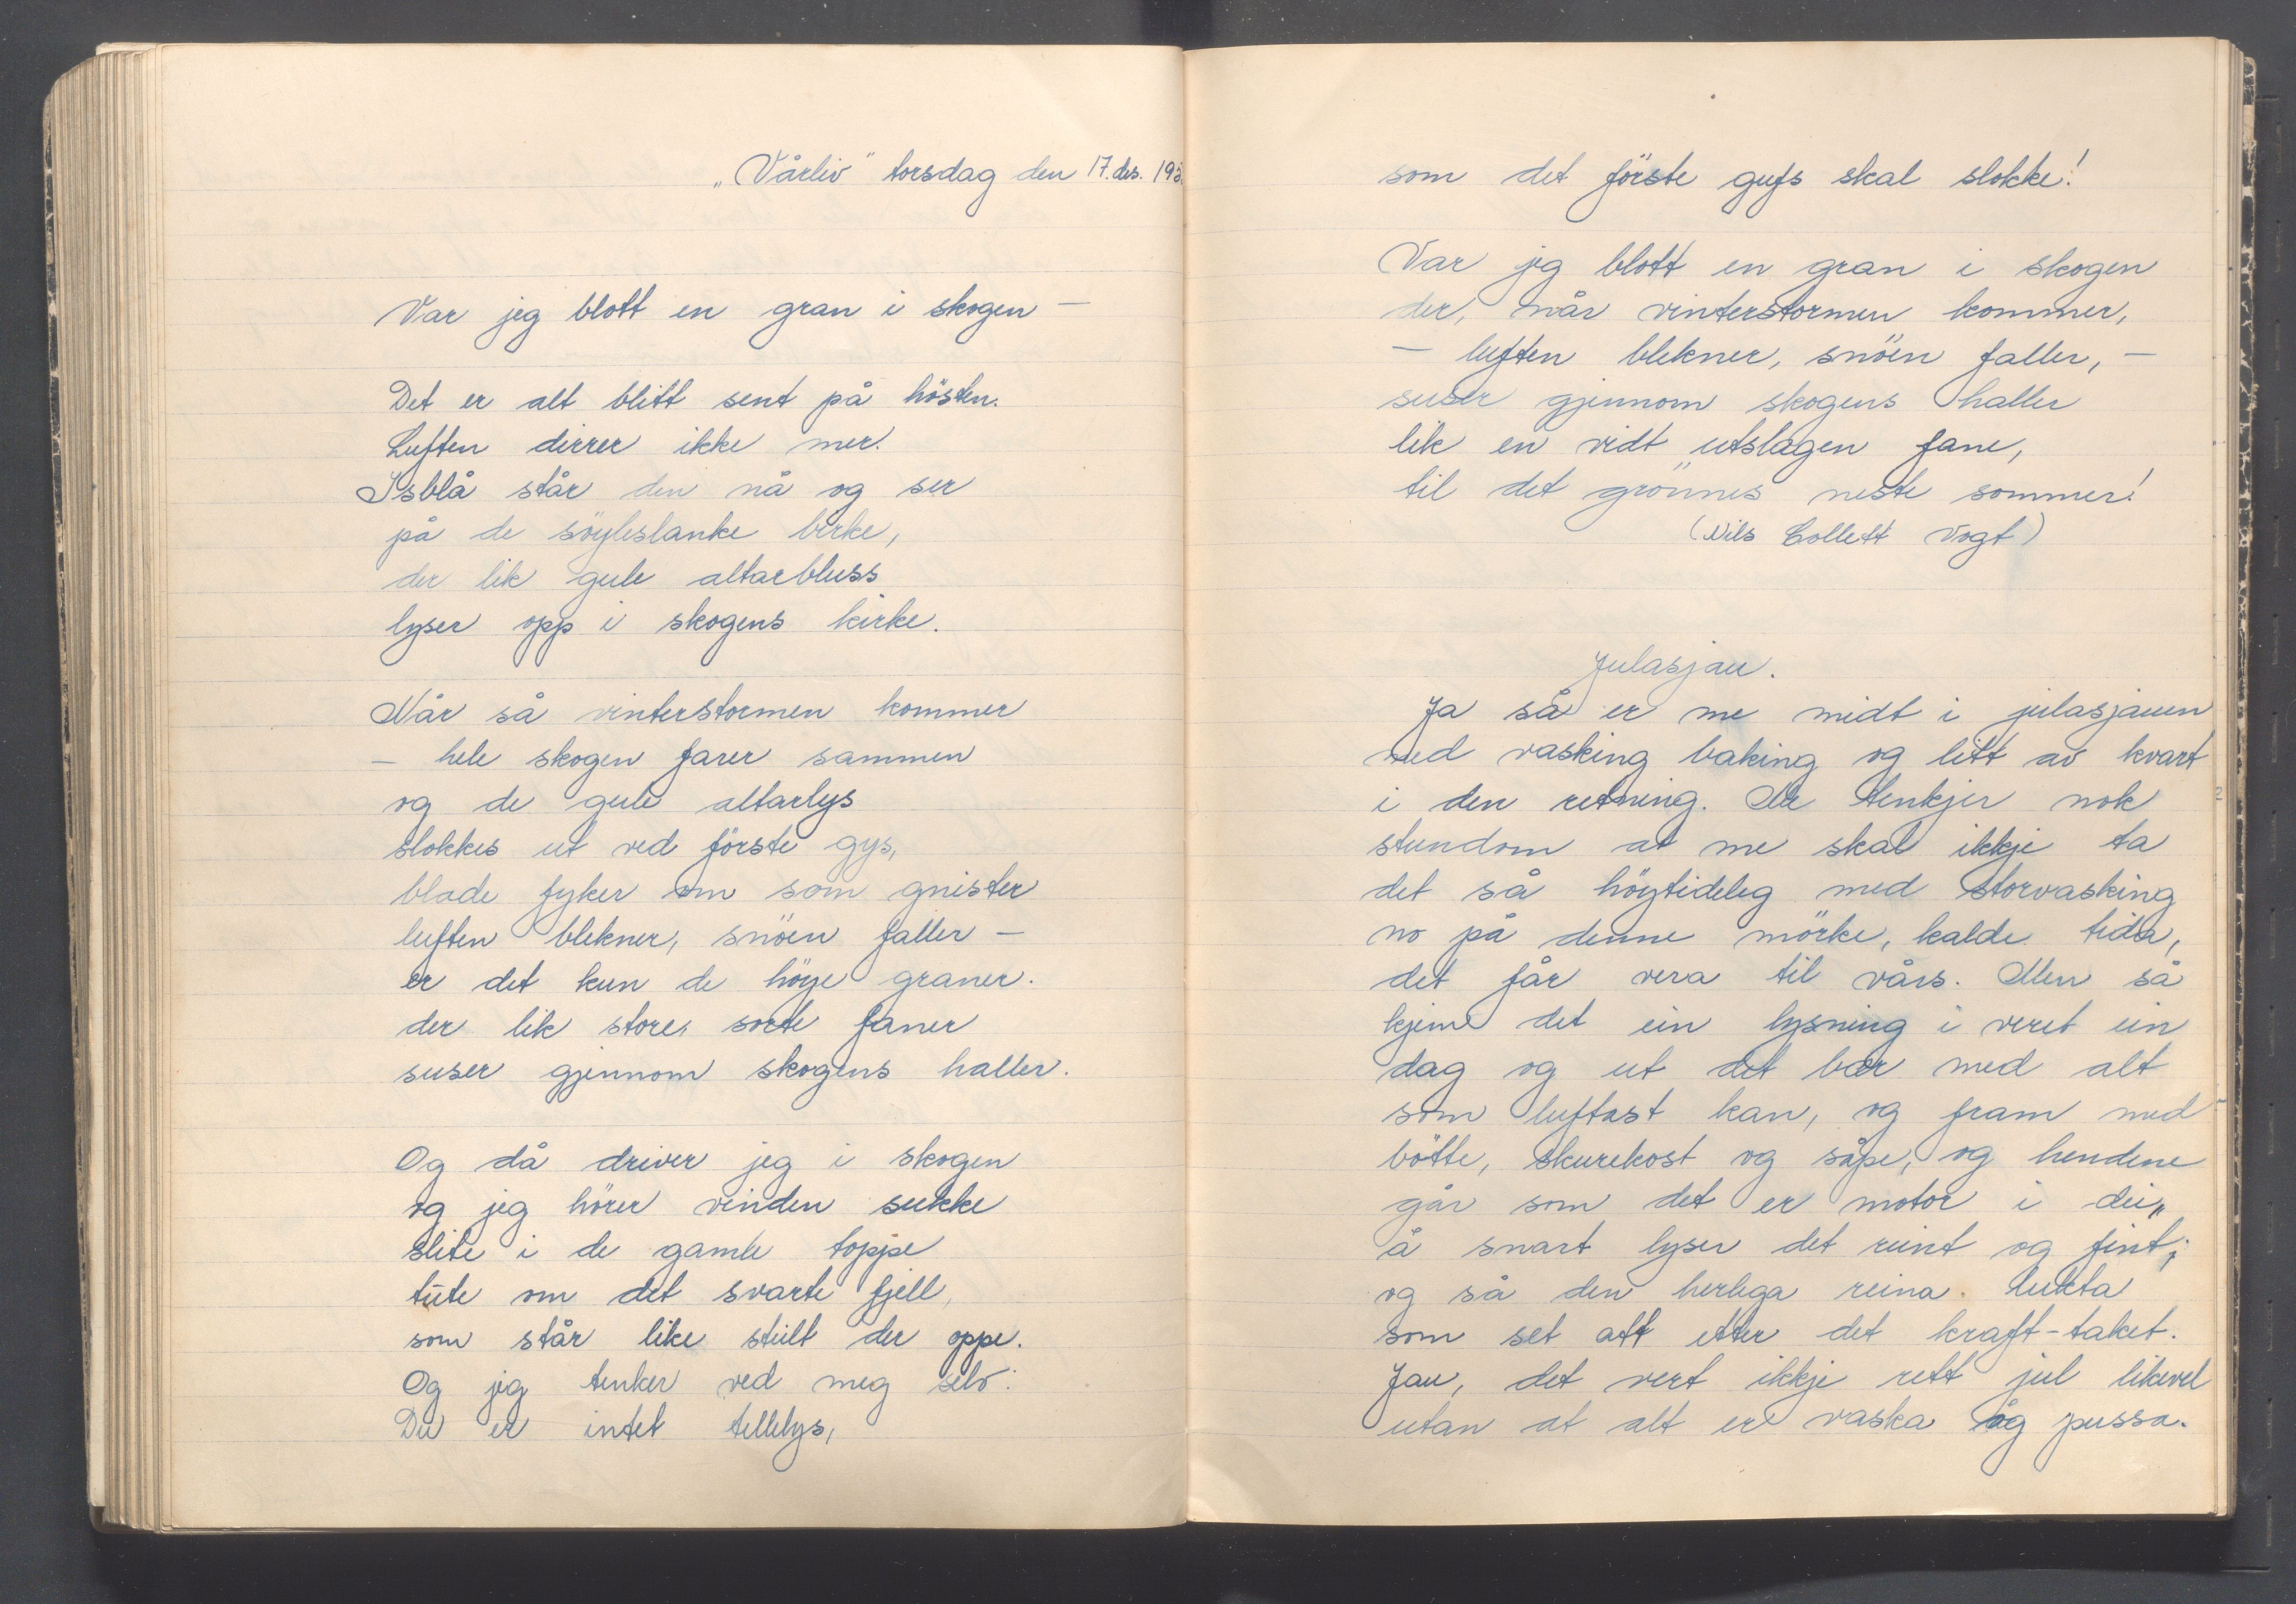 „Vårliv" torsdag den 17. des. 195
Var jeg blott en gran i skogen —
Det er alt blitt sent på hösten.
Luften dirrer ikke mer.
Isblå står den nå og ser
på de söyleslanke birke,
der lik gule altarbluss
lyser opp i skogens kirke.
Når så vinterstormen kommer
— hele skogen farer sammen
og de gule altarlys
slokkes ut ved förste gys,
blade fyker om som gnister
luften blekner, snöen faller —
er det kun de höye graner.
der lik store, sorte faner
suser gjennom skogens haller.
Og då driver jeg i skogen
og jeg hörer vinden sukke
slite i de gamle toppe
tute om det svarte fjell,
som står like stillt der oppe.
Og jeg tenker ved meg selv:
Du er intet tellelys,
som det förste gufs skal slokke!
Var jeg blott en gran i skogen
der, når vinterstormen kommer,
— luften blekner, snöen faller, —
suser gjennom skogens haller
lik en vidt utslagen fane,
til det grönnes neste sommer!
(Nils Collett Vogt)
Julasjau.
Ja så er me midt i julasjauen
med vasking baking og litt av kvart
i den retning. Me tenkjer nok
stundom at me skal ikkje ta
det så höytideleg med storvasking
no på denne mörke, kalde tida,
det får vera til vårs. Men så
kjem det ein lysning i veret ein
dag og ut det bær med alt
som luftast kan, og fram med
bötte, skurekost og såpe, og hendene
går som det er motor i dei„
å snart lyser det reint og fint;
og så den herlega reina. lukta
som set att etter det kraft-taket.
Jau, det vert ikkje rett jul likevel
utan at alt er vaska og pussa.